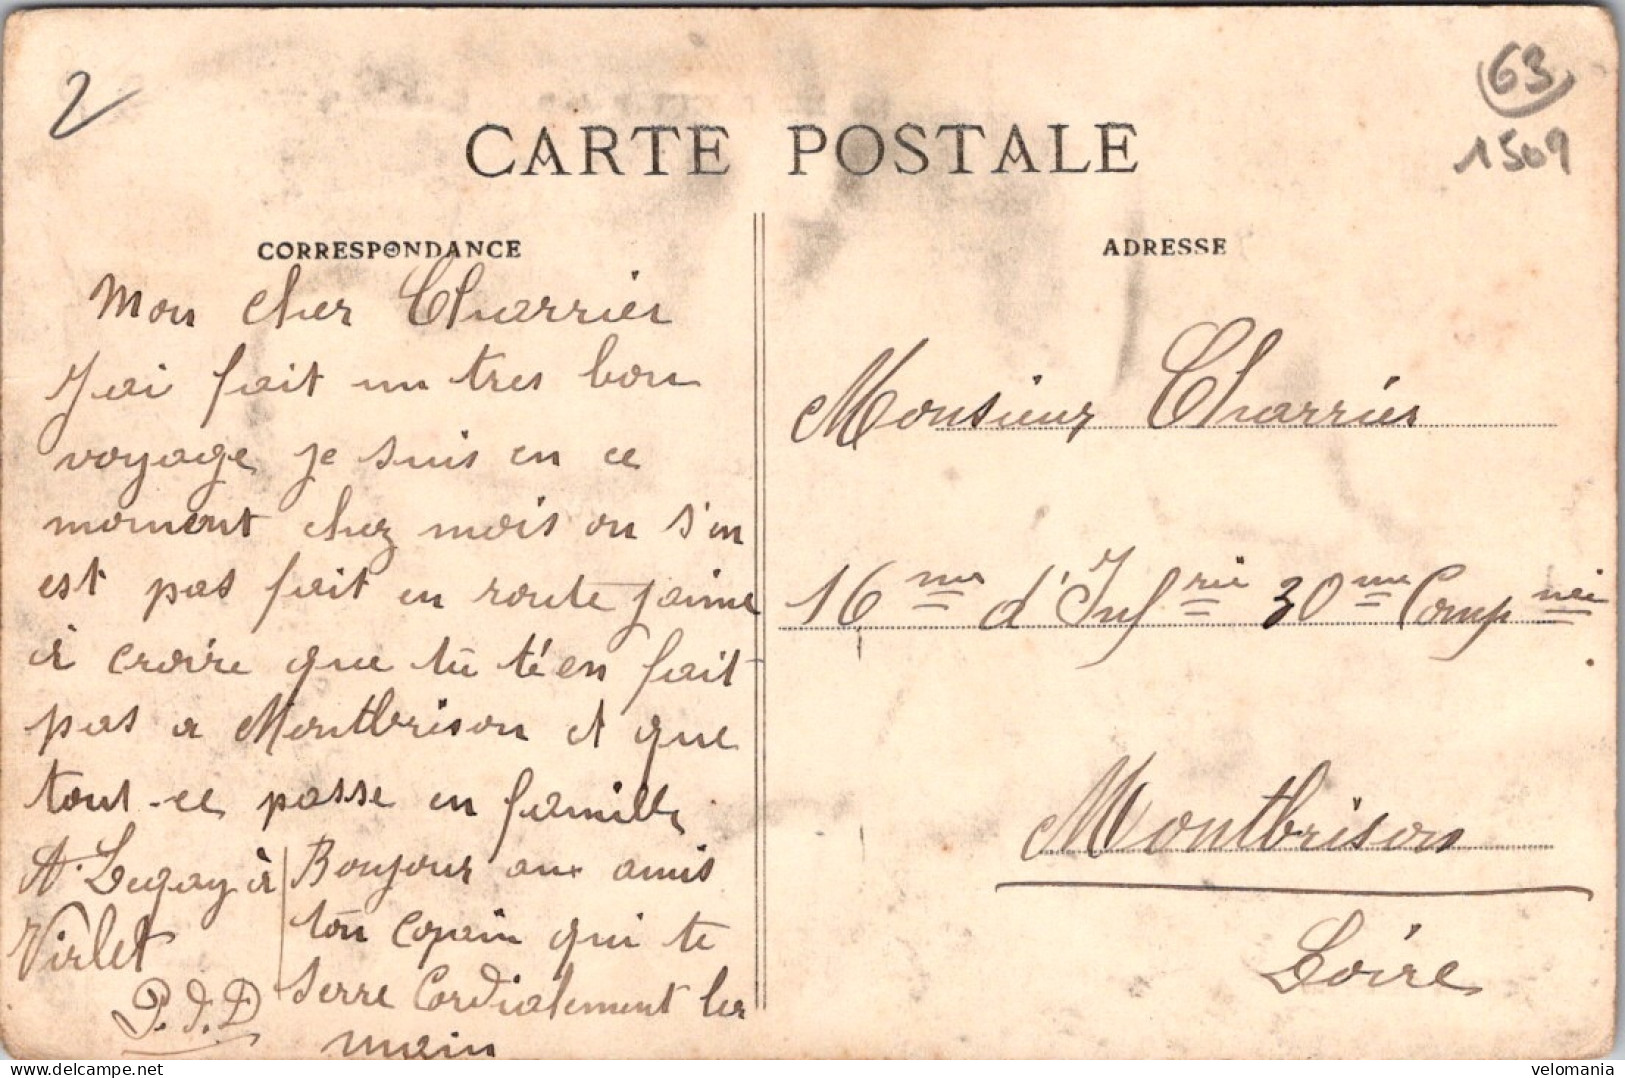 2
63
1509
CARTE POSTALE
CORRESPONDANCE
ADRESSE
Mon cher Charrier
J'ai fait un tres bon
voyage je suis en ce
moment chez mois on s'en
est pas fait en route j'aime
à croire que tu t'é en fait
pas a Montbrison et que
tout ce passe en famille
A. Legay à
Virlet
P. d. D
Bonjour aux amis
ton copain qui te
serre Cordialement la
main
Monsieur Charrier
16me d'Infrie 30me Compnie
Montbrison
Loire
velomania
delcampe.net